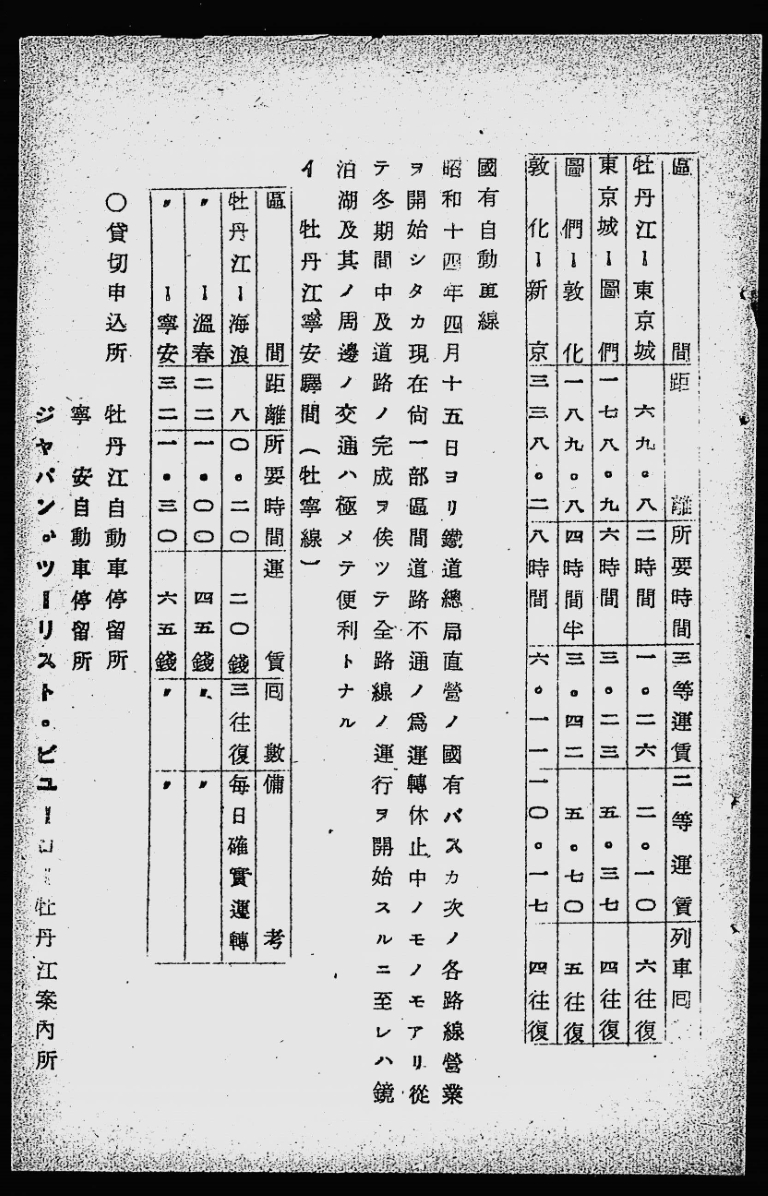 區間 距離 所要時間 三等運賃 二等運賃 列車囘
牡丹江ー東京城 六九。八 二時間 一。二六 二。一〇 六往復
東京城ー圖們 一七八。九 六時間 三。二三 五。三七 四往復
圖們ー敦化 一八九。八 四時間半 三。四二 五。七〇 五往復
敦化ー新京 三三八。二 八時間 六。一一 一〇。一七 四往復
國有自動車線
昭和十四年四月十五日ヨリ鐵道總局直營ノ國有バスカ次ノ各路線營業
ヲ開始シタカ現在尙一部區間道路不通ノ爲運轉休止中ノモノモアリ從
テ冬期間中及道路ノ完成ヲ俟ツテ全路線ノ運行ヲ開始スルニ至レハ鏡
泊湖及其ノ周邊ノ交通ハ極メテ便利トナル
イ 牡丹江寧安驛間(牡寧線)
區間 距離 所要時間 運賃 囘數 備考
牡丹江ー海浪 八 〇・二〇 二〇錢 三往復 每日確實運轉
〃ー溫春 二二 一・〇〇 四五錢 〃 〃
〃ー寧安 三二 一・三〇 六五錢 〃 〃
〇貸切申込所 牡丹江自動車停留所
寧安自動車停留所
ジャパン。ツーリスト。ビューロー牡丹江案內所